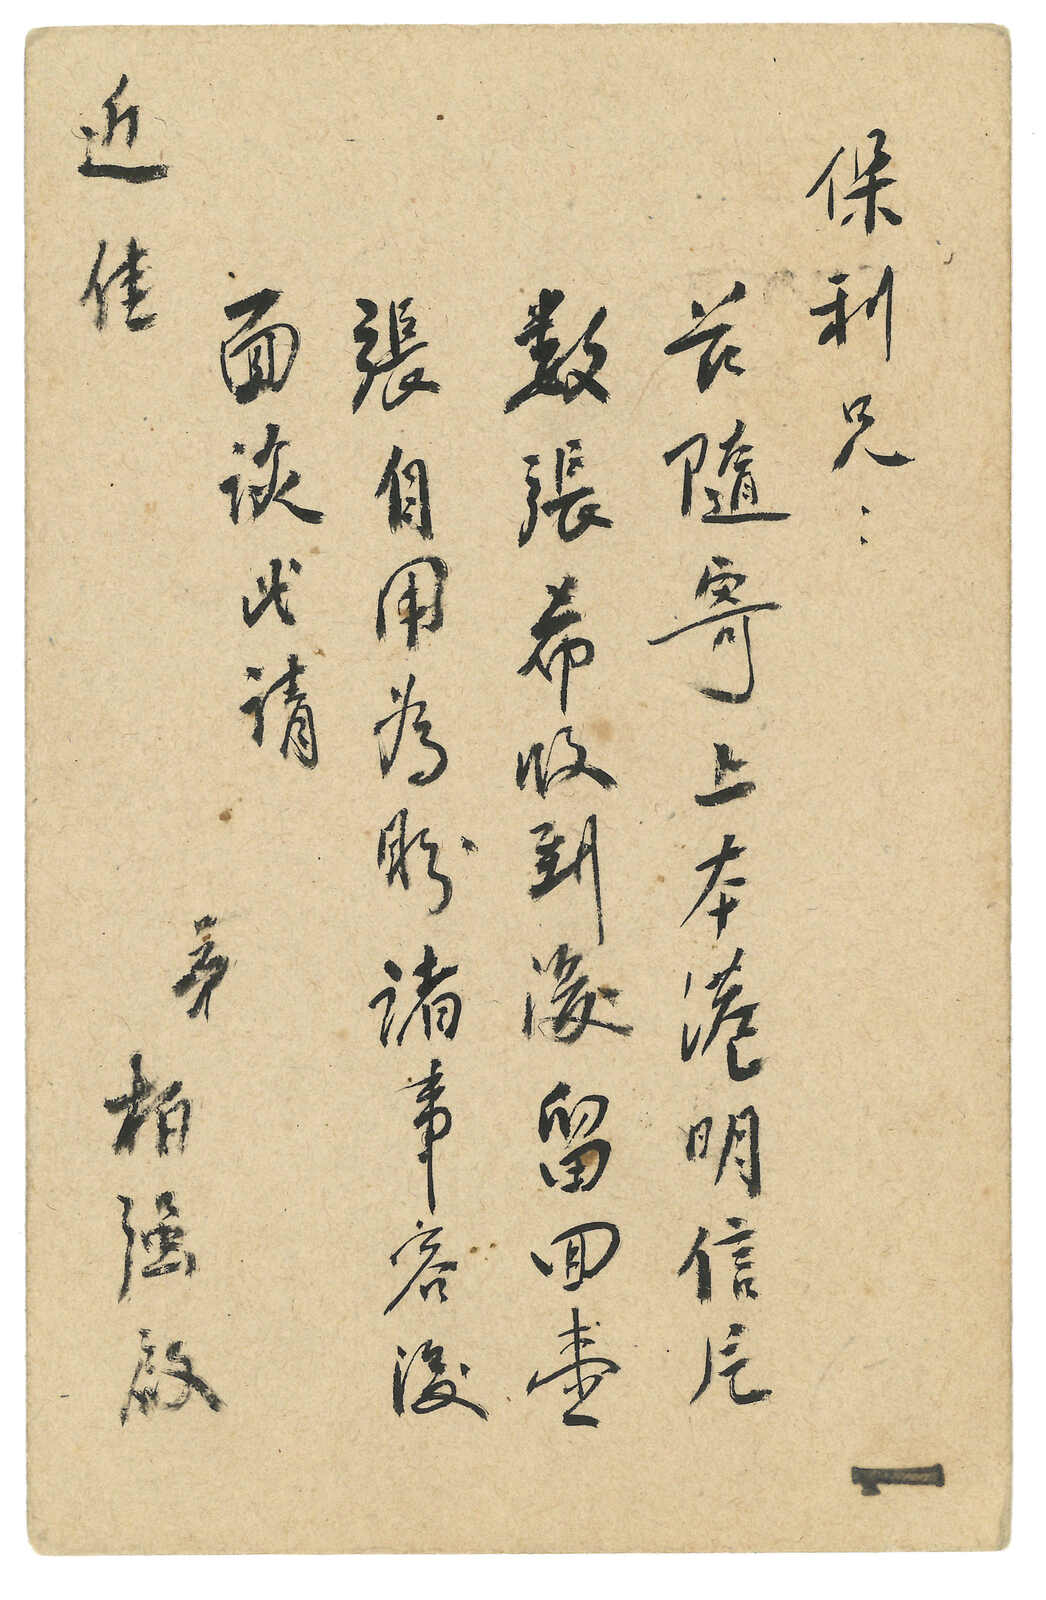 保利兄：
茲隨寄上本港明信片
数張希收到後留回壹
張自用為盼諸事容後
面談此請
近佳
弟 柏强啟